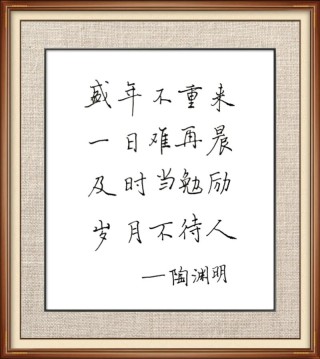 盛年不重来
一日难再晨
及时当勉励
岁月不待人
—陶渊明